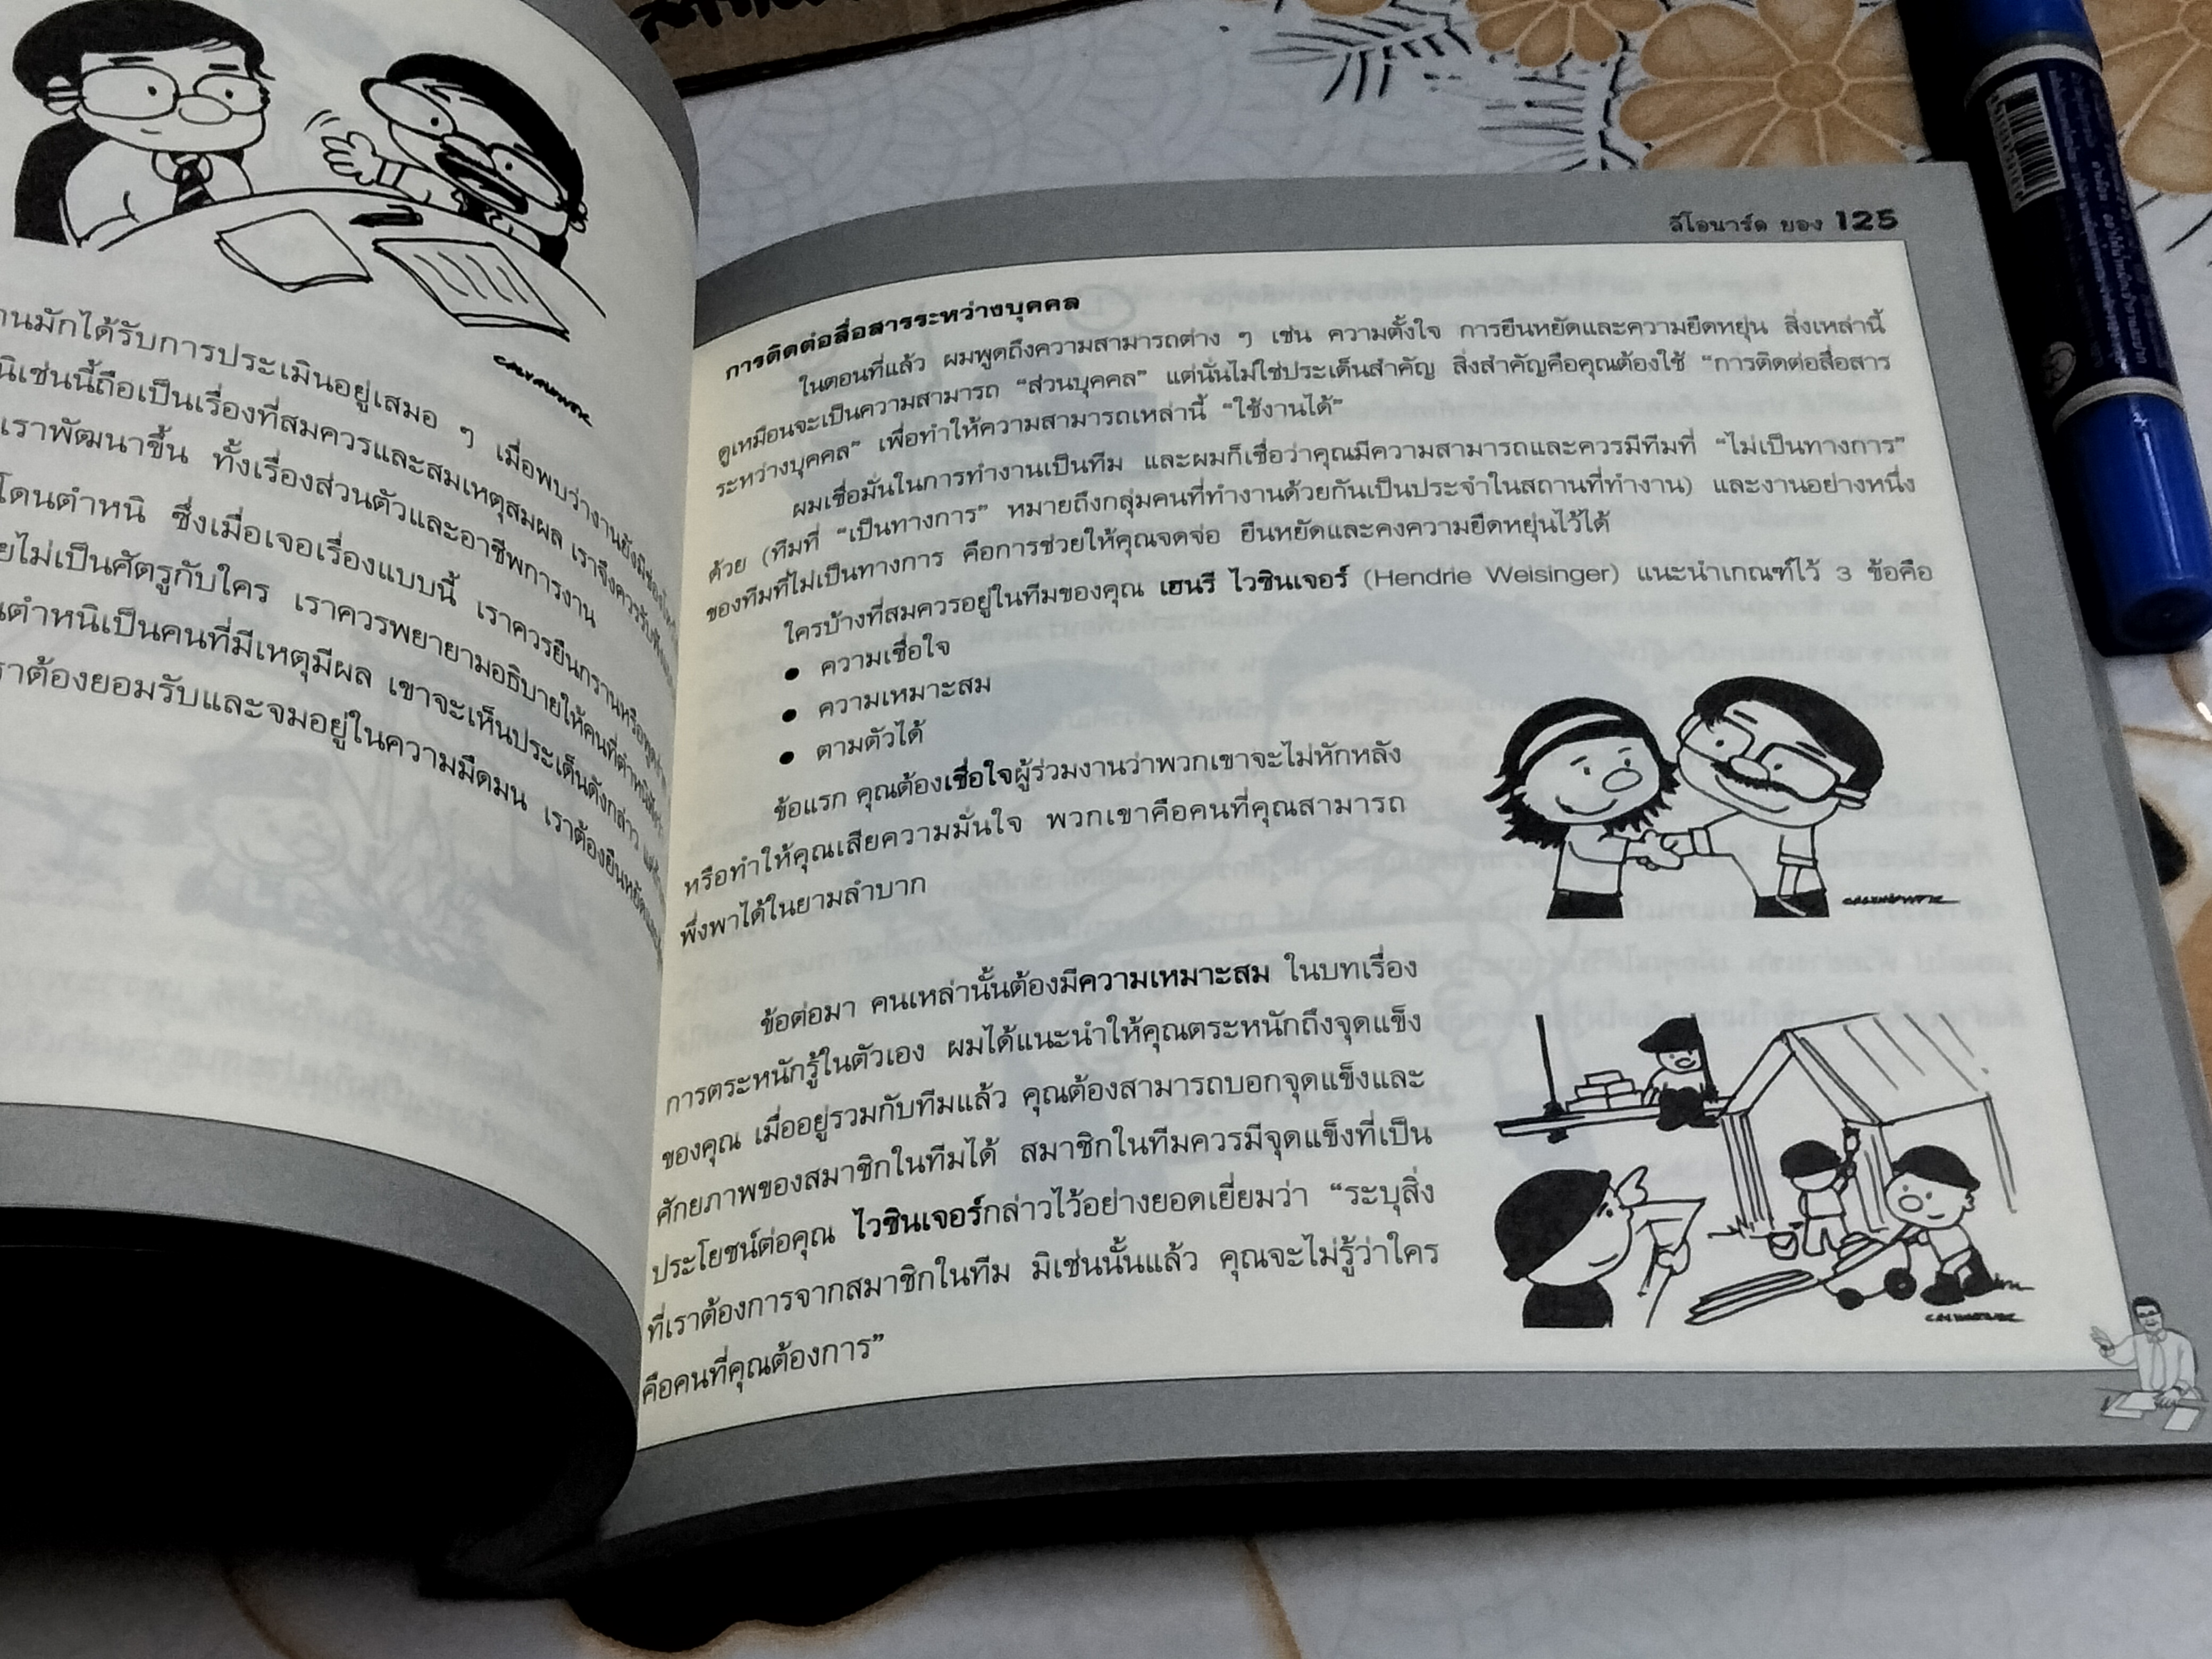 านมักได้รับการประเมินอยู่เสมอ ๆ เมื่อพบว่างานยังมี
นิเช่นนี้ถือเป็นเรื่องที่สมควรและสมเหตุสมผล เราจึงควรรับฟัง
เราพัฒนาขึ้น ทั้งเรื่องส่วนตัวและอาชีพการงาน
โดนตำหนิ ซึ่งเมื่อเจอเรื่องแบบนี้ เราควรยืนกรานหรือ
ยไม่เป็นศัตรูกับใคร เราควรพยายามอธิบายให้คนที่ตำหนิ
นตำหนิเป็นคนที่มีเหตุมีผล เขาจะเห็นประเด็นดังกล่าว
ราต้องยอมรับและจมอยู่ในความมืดมน เราต้องยืนหยัด
ลีโอนาร์ด ยอง 125
การติดต่อสื่อสารระหว่างบุคคล
ในตอนที่แล้ว ผมพูดถึงความสามารถต่าง ๆ เช่น ความตั้งใจ การยืนหยัดและความยืดหยุ่น สิ่งเหล่านี้
ดูเหมือนจะเป็นความสามารถ “ส่วนบุคคล” แต่นั่นไม่ใช่ประเด็นสำคัญ สิ่งสำคัญคือคุณต้องใช้ “การติดต่อสื่อสาร
ระหว่างบุคคล” เพื่อทำให้ความสามารถเหล่านี้ “ใช้งานได้”
ผมเชื่อมั่นในการทำงานเป็นทีม และผมก็เชื่อว่าคุณมีความสามารถและควรมีทีมที่ “ไม่เป็นทางการ”
ด้วย (ทีมที่ “เป็นทางการ” หมายถึงกลุ่มคนที่ทำงานด้วยกันเป็นประจำในสถานที่ทำงาน) และงานอย่างหนึ่ง
ของทีมที่ไม่เป็นทางการ คือการช่วยให้คุณจดจ่อ ยืนหยัดและคงความยืดหยุ่นไว้ได้
ใครบ้างที่สมควรอยู่ในทีมของคุณ เฮนรี ไวซินเจอร์ (Hendrie Weisinger) แนะนำเกณฑ์ไว้ 3 ข้อคือ
● ความเชื่อใจ
● ความเหมาะสม
● ตามตัวได้
ข้อแรก คุณต้องเชื่อใจผู้ร่วมงานว่าพวกเขาจะไม่หักหลัง
หรือทำให้คุณเสียความมั่นใจ พวกเขาคือคนที่คุณสามารถ
พึ่งพาได้ในยามลำบาก
ข้อต่อมา คนเหล่านั้นต้องมีความเหมาะสม ในบทเรื่อง
การตระหนักรู้ในตัวเอง ผมได้แนะนำให้คุณตระหนักถึงจุดแข็ง
ของคุณ เมื่ออยู่รวมกับทีมแล้ว คุณต้องสามารถบอกจุดแข็งและ
ศักยภาพของสมาชิกในทีมได้ สมาชิกในทีมควรมีจุดแข็งที่เป็น
ประโยชน์ต่อคุณ ไวซินเจอร์กล่าวไว้อย่างยอดเยี่ยมว่า “ระบุสิ่ง
ที่เราต้องการจากสมาชิกในทีม มิเช่นนั้นแล้ว คุณจะไม่รู้ว่าใคร
คือคนที่คุณต้องการ”